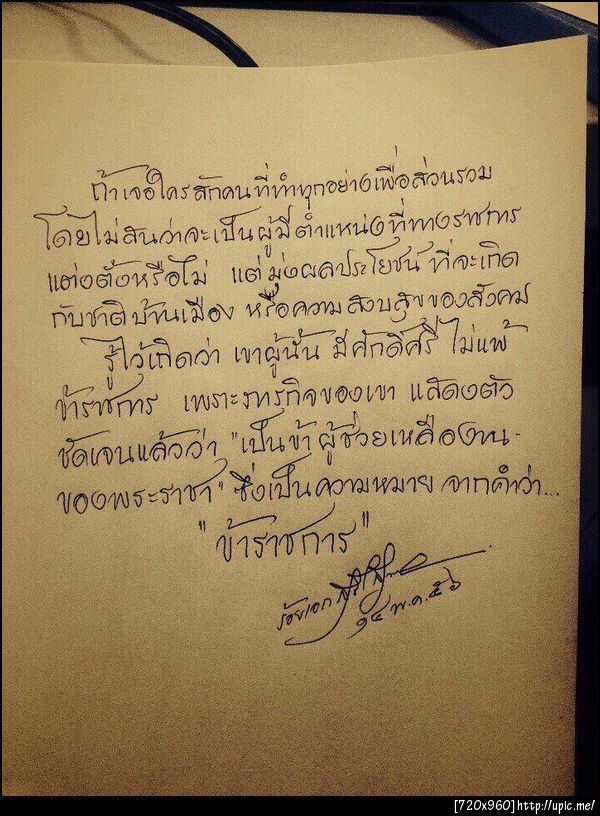 ถ้าเจอใครสักคนที่ทำทุกอย่างเพื่อส่วนรวม
โดยไม่สนว่าจะเป็นผู้มีตำแหน่งที่ทางราชการ
แต่งตั้งหรือไม่ แต่มุ่งผลประโยชน์ ที่จะเกิด
กับชาติบ้านเมือง หรือความสงบสุขของสังคม
รู้ไว้เถิดว่า เขาผู้นั้น มีศักดิ์ศรี ไม่แพ้
ข้าราชการ เพราะภารกิจของเขา แสดงตัว
ชัดเจนแล้วว่า "เป็นข้า ผู้ช่วยเหลืองาน-
ของพระราชา" ซึ่งเป็นความหมาย จากคำว่า...
"ข้าราชการ"
ร้อยเอก
๑๔ พ.ค. ๕๖
[720x960]http://upic.me/